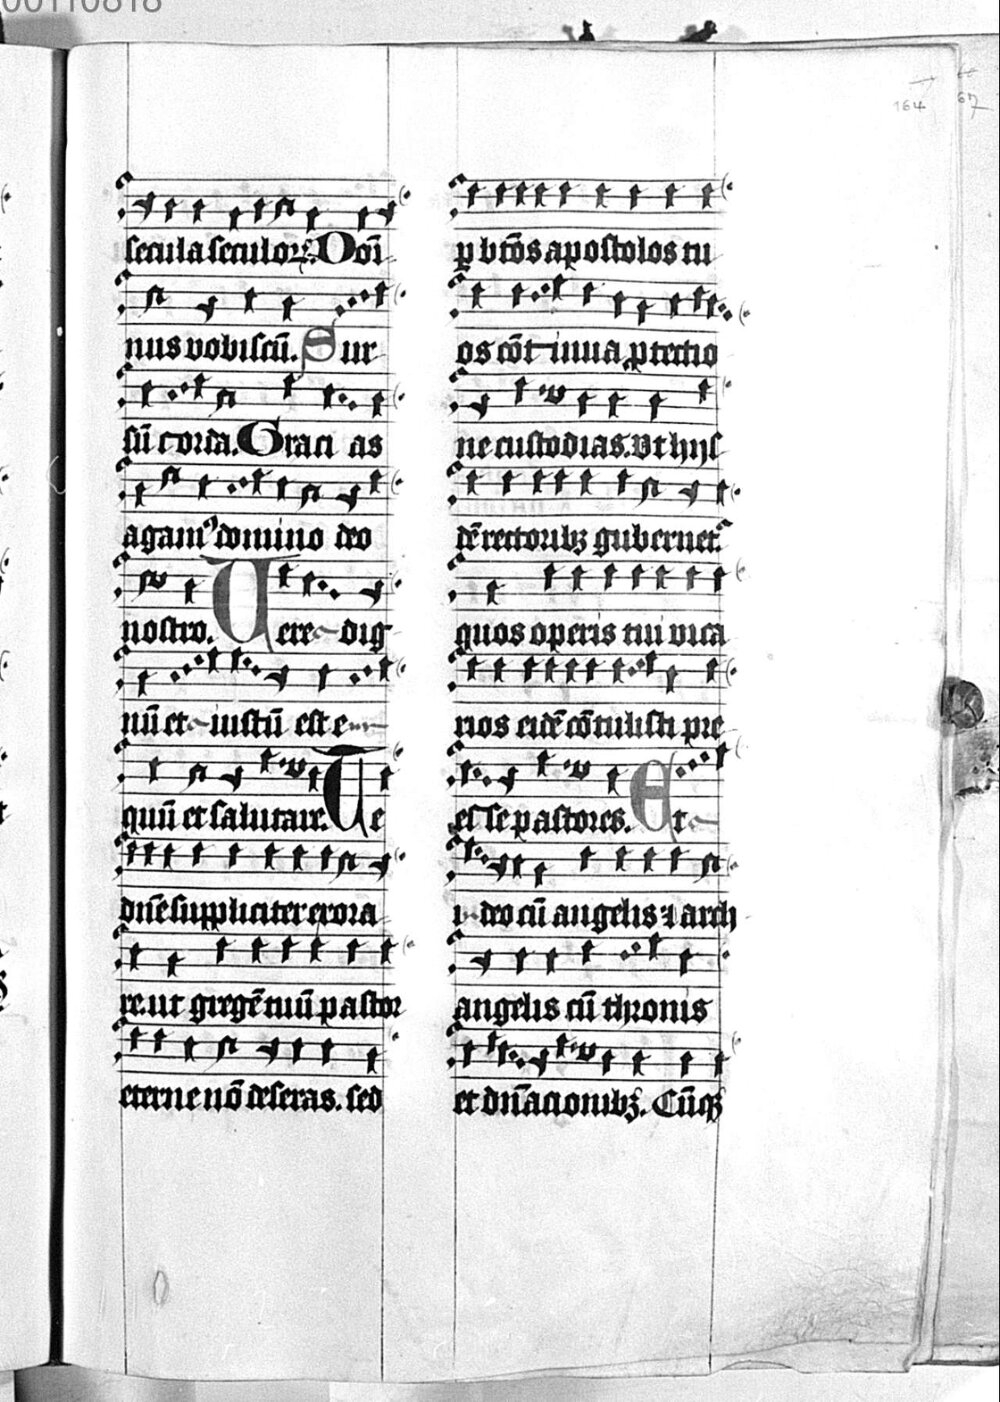 00110818
164
67
secula seculoꝝ. Domi
nus vobiscū. Sur
sū corda. Graci as
agamꝰ domino deo
nostro. Vere dig
nū et iustū est e
quū et salutare. Te
dn̄e suppliciter exora
re. ut gregē tuū pastor
eterne nō deseras. sed
ꝑ btōs apostolos tu
os cōt inua ꝓtectio
ne custodias. Vt hijs
dē rectoribꝫ gubernet᷑
quos operis tui vica
rios eidē cōtulisti pre
es se pastores. Et
i deo cū angelis ⁊ arch
angelis cū thronis
et dn̄acionibꝫ. Cūqꝫ